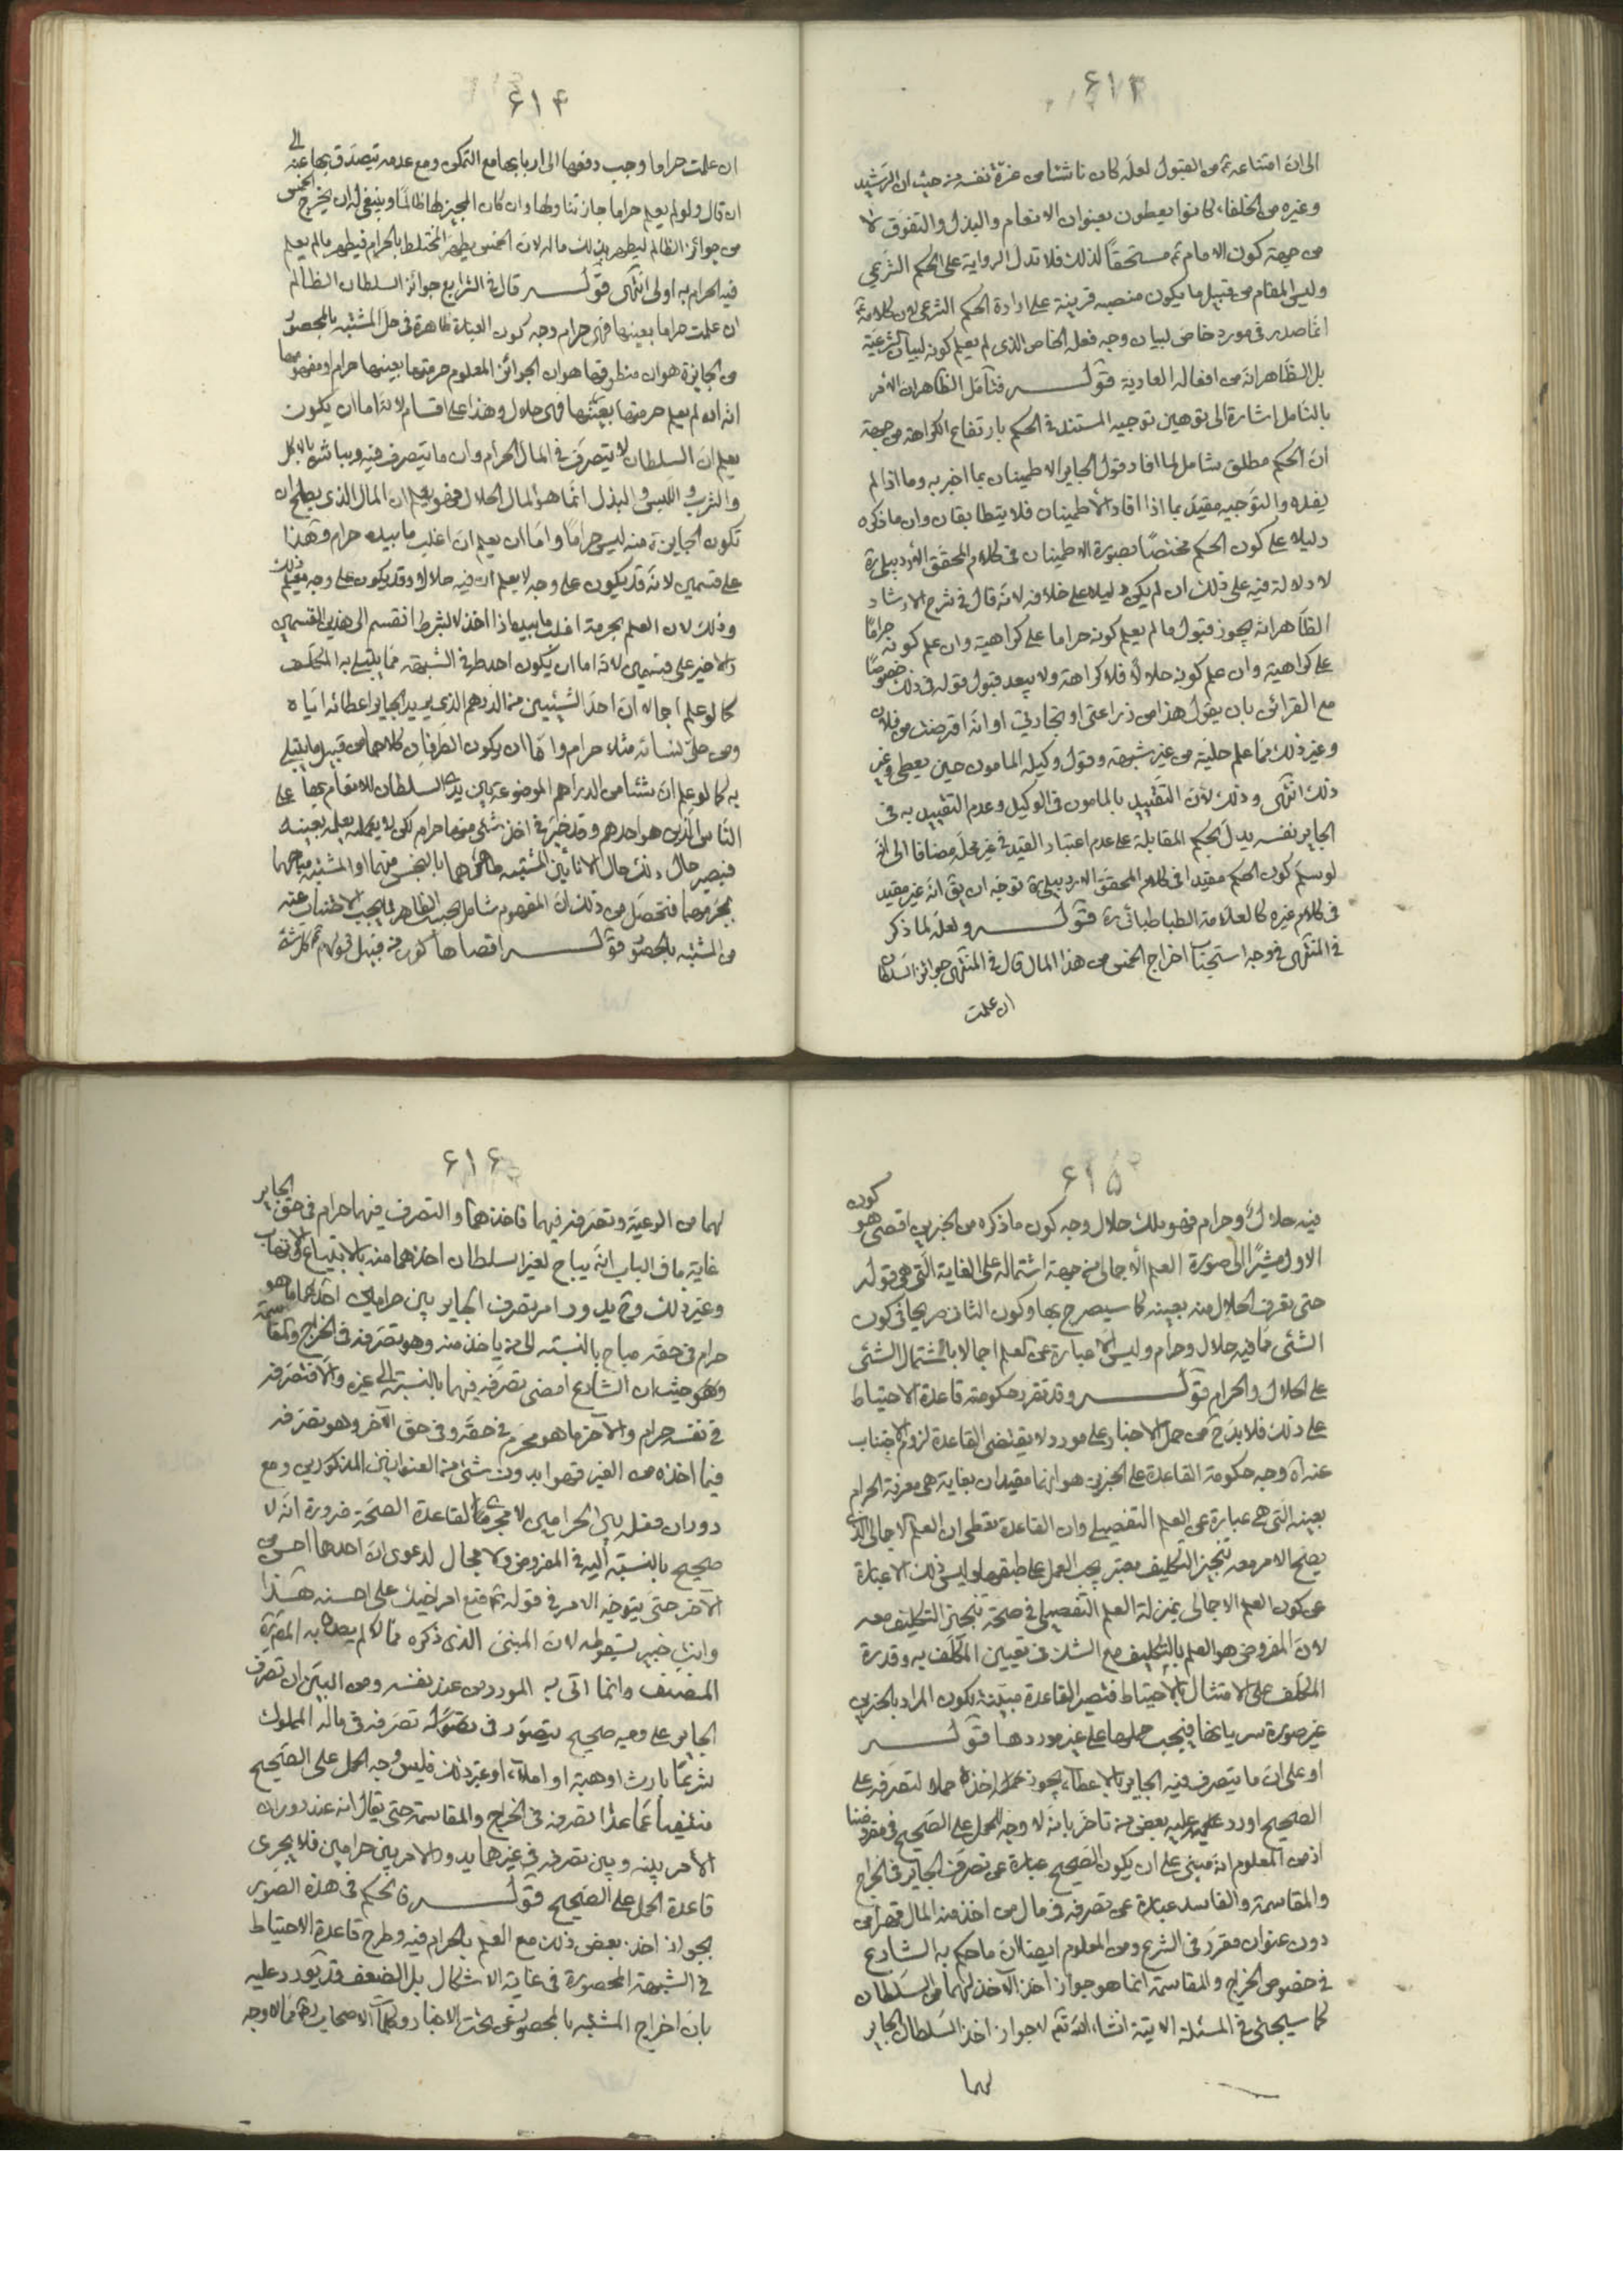 ۶۱۳
الى ان امتناعه ع من القبول لعله كان ناشئا من عزة نفسه من حيث ان الرشيد
وغيره من الخلفاء كانوا يعطون بعنوان الانعام والبذل والتفوق لا
من جهة كون الامام ع مستحقا لذلك فلا تدل الرواية على الحكم الشرعي
وليس المقام من قبيل ما يكون منصبه قرينة على ارادة الحكم الشرعى لان كلامه ع
انما صدر في مورد خاص لبيان وجه فعله الخاص الذى لم يعلم كونه لبيان الشرعية
بل الظاهر انه من افعاله العادية قوله فتأمل الظاهر ان الامر
بالتامل اشارة الى توهين توجيه المستند في الحكم بارتفاع الكراهة من جهة
ان الحكم مطلق شامل لما افاد قول الجاير الاطمينان بما اخبر به وما اذا لم
يفده والتوجيه مقيد بما اذا افاد الاطمينان فلا يتطابقان وان ما ذكره
دليلا على كون الحكم مختصا بصورة الاطمينان فى كلام المحقق الاردبيلى ره
لا دلالة فيه على ذلك ان لم يكن دليلا على خلافه لانه قال في شرح الارشاد
الظاهر انه يجوز قبول ما لم يعلم كونه حراما على كراهية وان علم كونه حراما
على كراهية وان علم كونه حلالا فلا كراهة ولا يبعد قبول قوله في ذلك خصوصا
مع القرائن بان يقول هذا من زراعتى او تجارتي او انه اقترضت من فلان
وغير ذلك مما علم حليته من غير شبهة وقول وكيله المامون حين يعطى وغير
ذلك انتهى وذلك لان التقييد بالمامون في الوكيل وعدم التقييد به فى
الجاير نفسه يدل بحكم المقابلة على عدم اعتبار القيد في غير محله مضافا الى انه
لو سلم كون الحكم مقيدا فى كلام المحقق الاردبيلى ره توجه ان يق انه غير مقيد
فى كلام غيره كالعلامة الطباطبائى ره قوله ولعله لما ذكر
في المنتهى فى وجه استحباب اخراج الخمس من هذا المال قال في المنتهى جوائز السلطان
ان علمت
۶۱۴
ان علمت حراما وجب دفعها الى اربابها مع التمكن ومع عدمه يتصدق بها عنه الى
ان قال ولو لم يعلم حراما جاز تناولها وان كان المجيز لها ظالما وينبغى له ان يخرج الخمس
من جوائز الظالم ليطهر بذلك ماله لان الخمس يطهر المختلط بالحرام فيطهر ما لم يعلم
فيه الحرام به اولى انتهى قوله قال في الشرايع جوائز السلطان الظالم
ان علمت حراما بعينها فهى حرام وجه كون العبارة ظاهرة فى حل المشتبه بالمحصور
من الجايزة هو ان منطوقها هو ان الجوائز المعلوم حرمتها بعينها حرام ومفهومها
انه ان لم يعلم حرمتها بعينها فهى حلال وهذا على اقسام لانه اما ان يكون
يعلم ان السلطان لا يتصرف في المال الحرام وان ما يتصرف فيه ويباشره بالاكل
والشرب واللبس والبذل انما هو المال الحلال فهو يعلم ان المال الذى يصلح ان
تكون الجايزة منه ليس حراما واما ان يعلم ان اغلب ما بيده حرام وهذا
على قسمين لانه قد يكون على وجه لا يعلم ان فيه حلالا وقد يكون على وجه يعلم ذلك
وذلك لان العلم بحرمة اغلب ما بيده اذا اخذ لا بشرط انقسم الى هذين القسمين
والاخير على قسمين لانه اما ان يكون احد طرفى الشبهة مما يبتلى به المكلف
كما لو علم اجمالا ان احد الشيئين من الدرهم الذى يريد الجاير اعطائه اياه
ومن حلى نسائه مثلا حرام واما ان يكون الطرفان كلاهما من قبيل ما يبتلى
به كما لو علم ان شيئا من الدراهم الموضوعة بين يدى السلطان للانعام بها على
الناس الذين هو احدهم وقد خير في اخذ شئ منها حرام لكن لا يعلمه بعينه
فيصير حال ذلك حال الانائين المشتبه طاهرهما بالنجس منهما او المشتبه مباحهما
بمحرمهما فتحصل من ذلك ان المفهوم شامل بحسب الظاهر لما يجب الاجتناب عنه
من المشتبه بالمحصور قوله اقصاها كونه من قبيل قولهم ع كل شئ
۶۱۵
فيه حلال وحرام فهو لك حلال وجه كون ما ذكره من الخبرين اقصى هو كون
الاول مشيرا الى صورة العلم الاجمالى من جهة اشتماله على الغاية التى هى قوله
حتى تعرف الحلال منه بعينه كما سيصرح بها وكون الثانى صريحا في كون
الشئ مما فيه حلال وحرام وليس الا عبارة عن العلم اجمالا باشتمال الشئ
على الحلال والحرام قوله وقد تقرر حكومة قاعدة الاحتياط
على ذلك فلا بد ح من حمل الاخبار على مورد لا يقتضى القاعدة لزوم الاجتناب
عنه اه وجه حكومة القاعدة على الخبرين هو انهما مقيدان بغاية هى معرفة الحرام
بعينه التى هى عبارة عن العلم التفصيلى وان القاعدة تعطى ان العلم الاجمالى الذى
يصح الامر معه تنجيز التكليف معتبر يجب العمل على طبقه وليس ذلك الا عبارة
عن كون العلم الاجمالى بمنزلة العلم التفصيلى في صحة تنجيز التكليف معه
لان المفروض هو العلم بالتكليف مع الشك فى تعيين المكلف به وقدرة
المكلف على الامتثال بالاحتياط فتصير القاعدة مبينة بكون المراد بالخبرين
غير صورة سريانها فيجب حملها على غير موردها قوله
او على ان ما يتصرف فيه الجاير بالاعطاء يجوز اخذه حملا لتصرفه على
الصحيح اورد عليه بعض من تاخر بانه لا وجه للحمل على الصحيح في مفروضنا
اذ من المعلوم انه مبنى على ان يكون الصحيح عبارة عن تصرف الجاير فى الخراج
والمقاسمة والفاسد عبارة عن تصرفه فى مال من اخذ منه المال قهرا من
دون عنوان مقرر فى الشرع ومن المعلوم ايضا ان ما حكم به الشارع
في خصوص الخراج والمقاسمة انما هو جواز اخذ الآخذ لهما من السلطان
كما سيجئ في المسئلة الاتية انشاء الله تع لا جواز اخذ السلطان الجاير
لهما
۶۱۶
لهما من الرعية وتصرفه فيهما فاخذهما والتصرف فيهما حرام فى حق الجاير
غاية ما في الباب انه يباح لغير السلطان اخذهما منه بالابتياع والاتهاب
وغير ذلك فيدور امر تصرف الجاير بين حرامين احدهما ما هو
حرام فى حقه مباح بالنسبة الى من ياخذ منه وهو تصرفه في الخراج والمقاسمة
وهو حيث ان الشارع امضى تصرفه فيهما بالنسبة الى غيره والا فتصرفه
في نفسه حرام والآخر ما هو محرم في حقه وفى حق الآخر وهو تصرفه
فيما اخذه من الغير قهرا بدون شئ من العنوانين المذكورين ومع
دوران فعله بين الحرامين لا مجرى لقاعدة الصحة ضرورة انه لا
صحيح بالنسبة اليه في المفروض ولا مجال لدعوى ان احدهما احسن من
الآخر حتى يتوجه الامر فى قوله ع ضع امر اخيك على احسنه هذا
وانت خبير بسقوطه لان المبنى الذى ذكره مما لم يصرح به المص ره
المصنف وانما اتى به المورد من عند نفسه ومن البين ان تصرف
الجاير على وجه صحيح يتصور فى تصرفه في ماله المملوك
شرعا بارث او هبة او املاء او غير ذلك فليس وجه الحمل على الصحيح
منتفيا عما عدا تصرفه فى الخراج والمقاسمة حتى يقال انه عند دوران
الامر بينه وبين تصرفه فى غيرهما يدور الامر بين حرامين فلا يجرى
قاعدة الحمل على الصحيح قوله فالحكم في هذه الصور
بجواز اخذ بعض ذلك مع العلم بالحرام فيه وطرح قاعدة الاحتياط
في الشبهة المحصورة فى غاية الاشكال بل الضعف قد يورد عليه
بان اخراج المشتبه بالمحصور عن تحت الاخبار وكلمات الاصحاب ره مما لا وجه